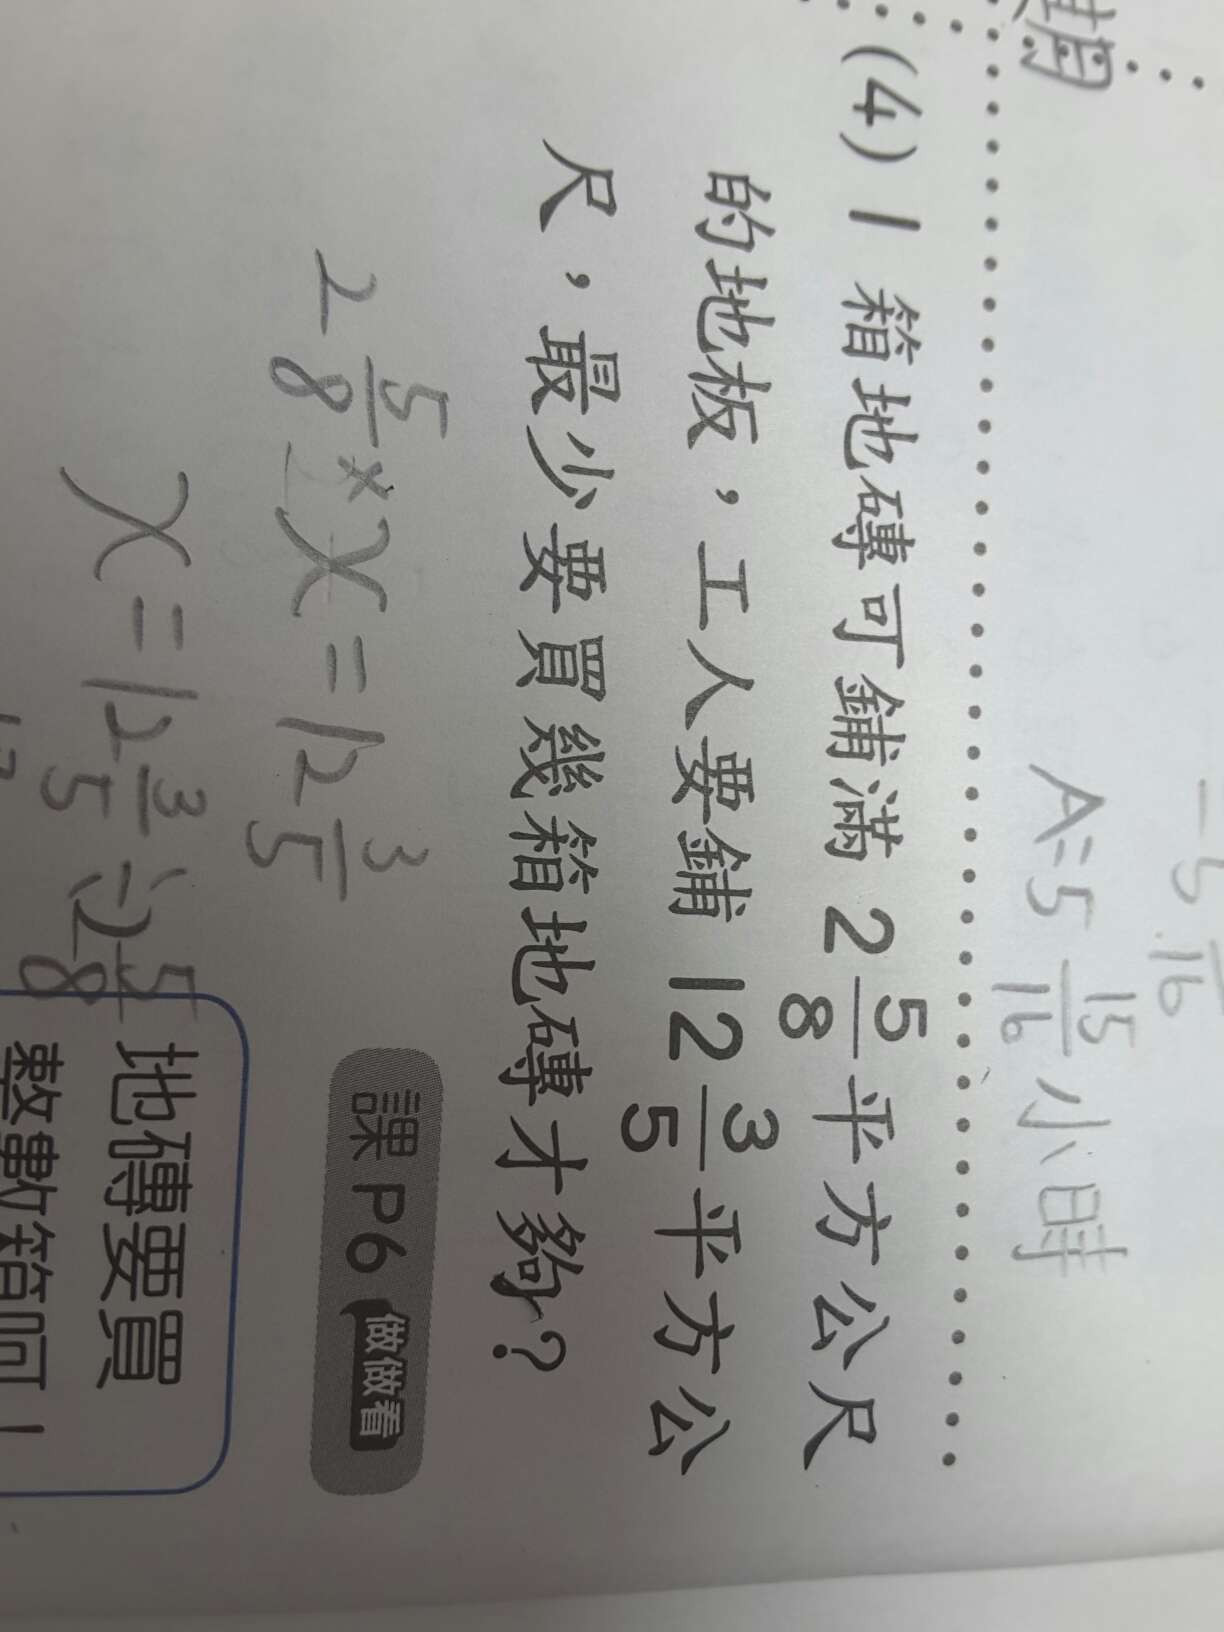 期
5/16
A=5 15/16 小時
(4) 1 箱地磚可鋪滿 2 5/8 平方公尺
的地板，工人要鋪 12 3/5 平方公
尺，最少要買幾箱地磚才夠？
課 P6 做做看
2 5/8 × X = 12 3/5
X = 12 3/5 ÷ 2 5/8
地磚要買
整數箱呵！